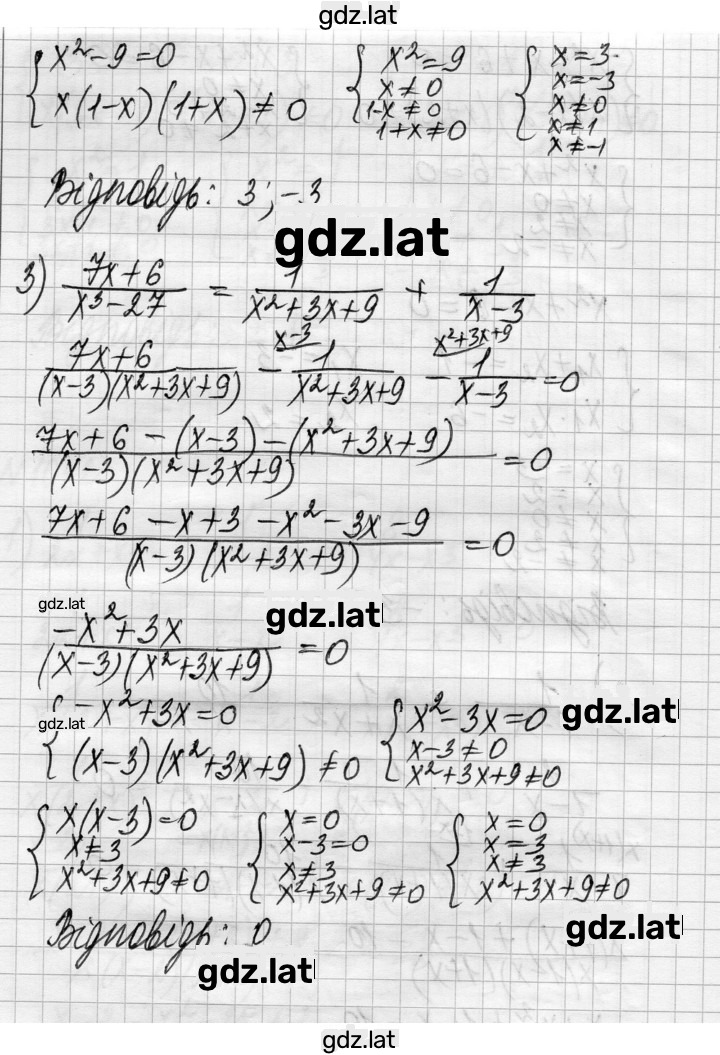 gdz.lat
{ x² - 9 = 0
x(1-x)(1+x) ≠ 0
{ x² = 9
x ≠ 0
1-x ≠ 0
1+x ≠ 0
{ x = 3
x = -3
x ≠ 0
x ≠ 1
x ≠ -1
Відповідь: 3; -3
gdz.lat
3) (7x+6)/(x³-27) = 1/(x²+3x+9) + 1/(x-3)
(7x+6)/((x-3)(x²+3x+9)) - ˣ⁻³ 1/(x²+3x+9) - ˣ²⁺³ˣ⁺⁹ 1/(x-3) = 0
(7x+6 - (x-3) - (x²+3x+9))/((x-3)(x²+3x+9)) = 0
(7x+6 - x+3 - x² - 3x - 9)/((x-3)(x²+3x+9)) = 0
gdz.lat
gdz.lat
(-x²+3x)/((x-3)(x²+3x+9)) = 0
gdz.lat
gdz.lat
{ -x²+3x = 0
(x-3)(x²+3x+9) ≠ 0
{ x²-3x = 0
x-3 ≠ 0
x²+3x+9 ≠ 0
{ x(x-3) = 0
x ≠ 3
x²+3x+9 ≠ 0
{ x = 0
x-3 = 0
x ≠ 3
x²+3x+9 ≠ 0
{ x = 0
x = 3
x ≠ 3
x²+3x+9 ≠ 0
Відповідь: 0
gdz.lat
gdz.lat
gdz.lat